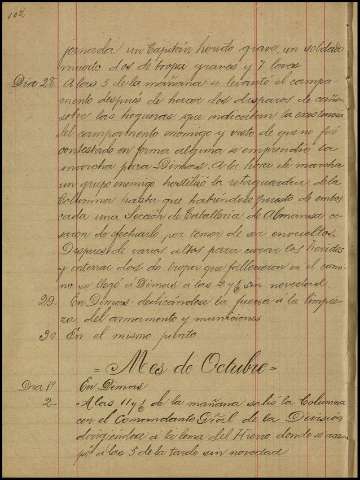 102
jornada un Capitan herido grave, un soldado
muerto dos de tropa graves y 7 leves
Dia 28 A las 5 de la mañana se levantó el campa
mento despues de hacer dos disparos de cañon
sobre las hogueras que indicaban la existencia
del campamento enemigo y visto de que no fué
contestado en forma alguna se emprendió la
marcha para Dimas. A la hora de marcha
un grupo enemigo hostilizó la retaguardia de la
Columna
una Sección de Caballeria de Almansa
por temor de ser envueltos
Despues de varios altos para curar los heridos
y enterar dos de tropa que fallecieron en el cami
no se llegó a Dimas a las 3 y ½ sin novedad
29. En Dimas dedicandose la fuerza a la limpie
za del armamento y municiones
30 En el mismo punto
= Mes de Octubre =
Dia 1º En Dimas
2 A las 11 y ½ de la mañana salió la Columna
con el Comandante Gral de la Division
dirigiendose a la loma del Hierro donde se acam
pó a las 5 de la tarde sin novedad